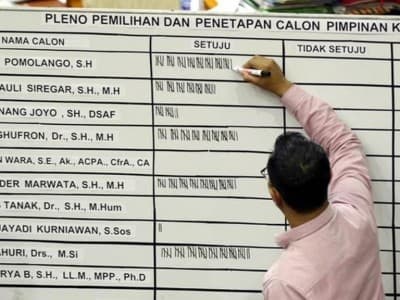 PLENO PEMILIHAN DAN PENETAPAN CALON PIMPINAN K
NAMA CALON SETUJU TIDAK SETUJU
POMOLANGO, S.H
AULI SIREGAR, S.H., M.H
NANG JOYO , SH., DSAF
GHUFRON, Dr., S.H., M.H
N WARA, S.E., Ak., ACPA., CfrA., CA
DER MARWATA, S.H., M.H
S TANAK, Dr., S.H., M.Hum
JAYADI KURNIAWAN, S.Sos
AHURI, Drs., M.Si
RYA B, S.H., LL.M., MPP., Ph.D